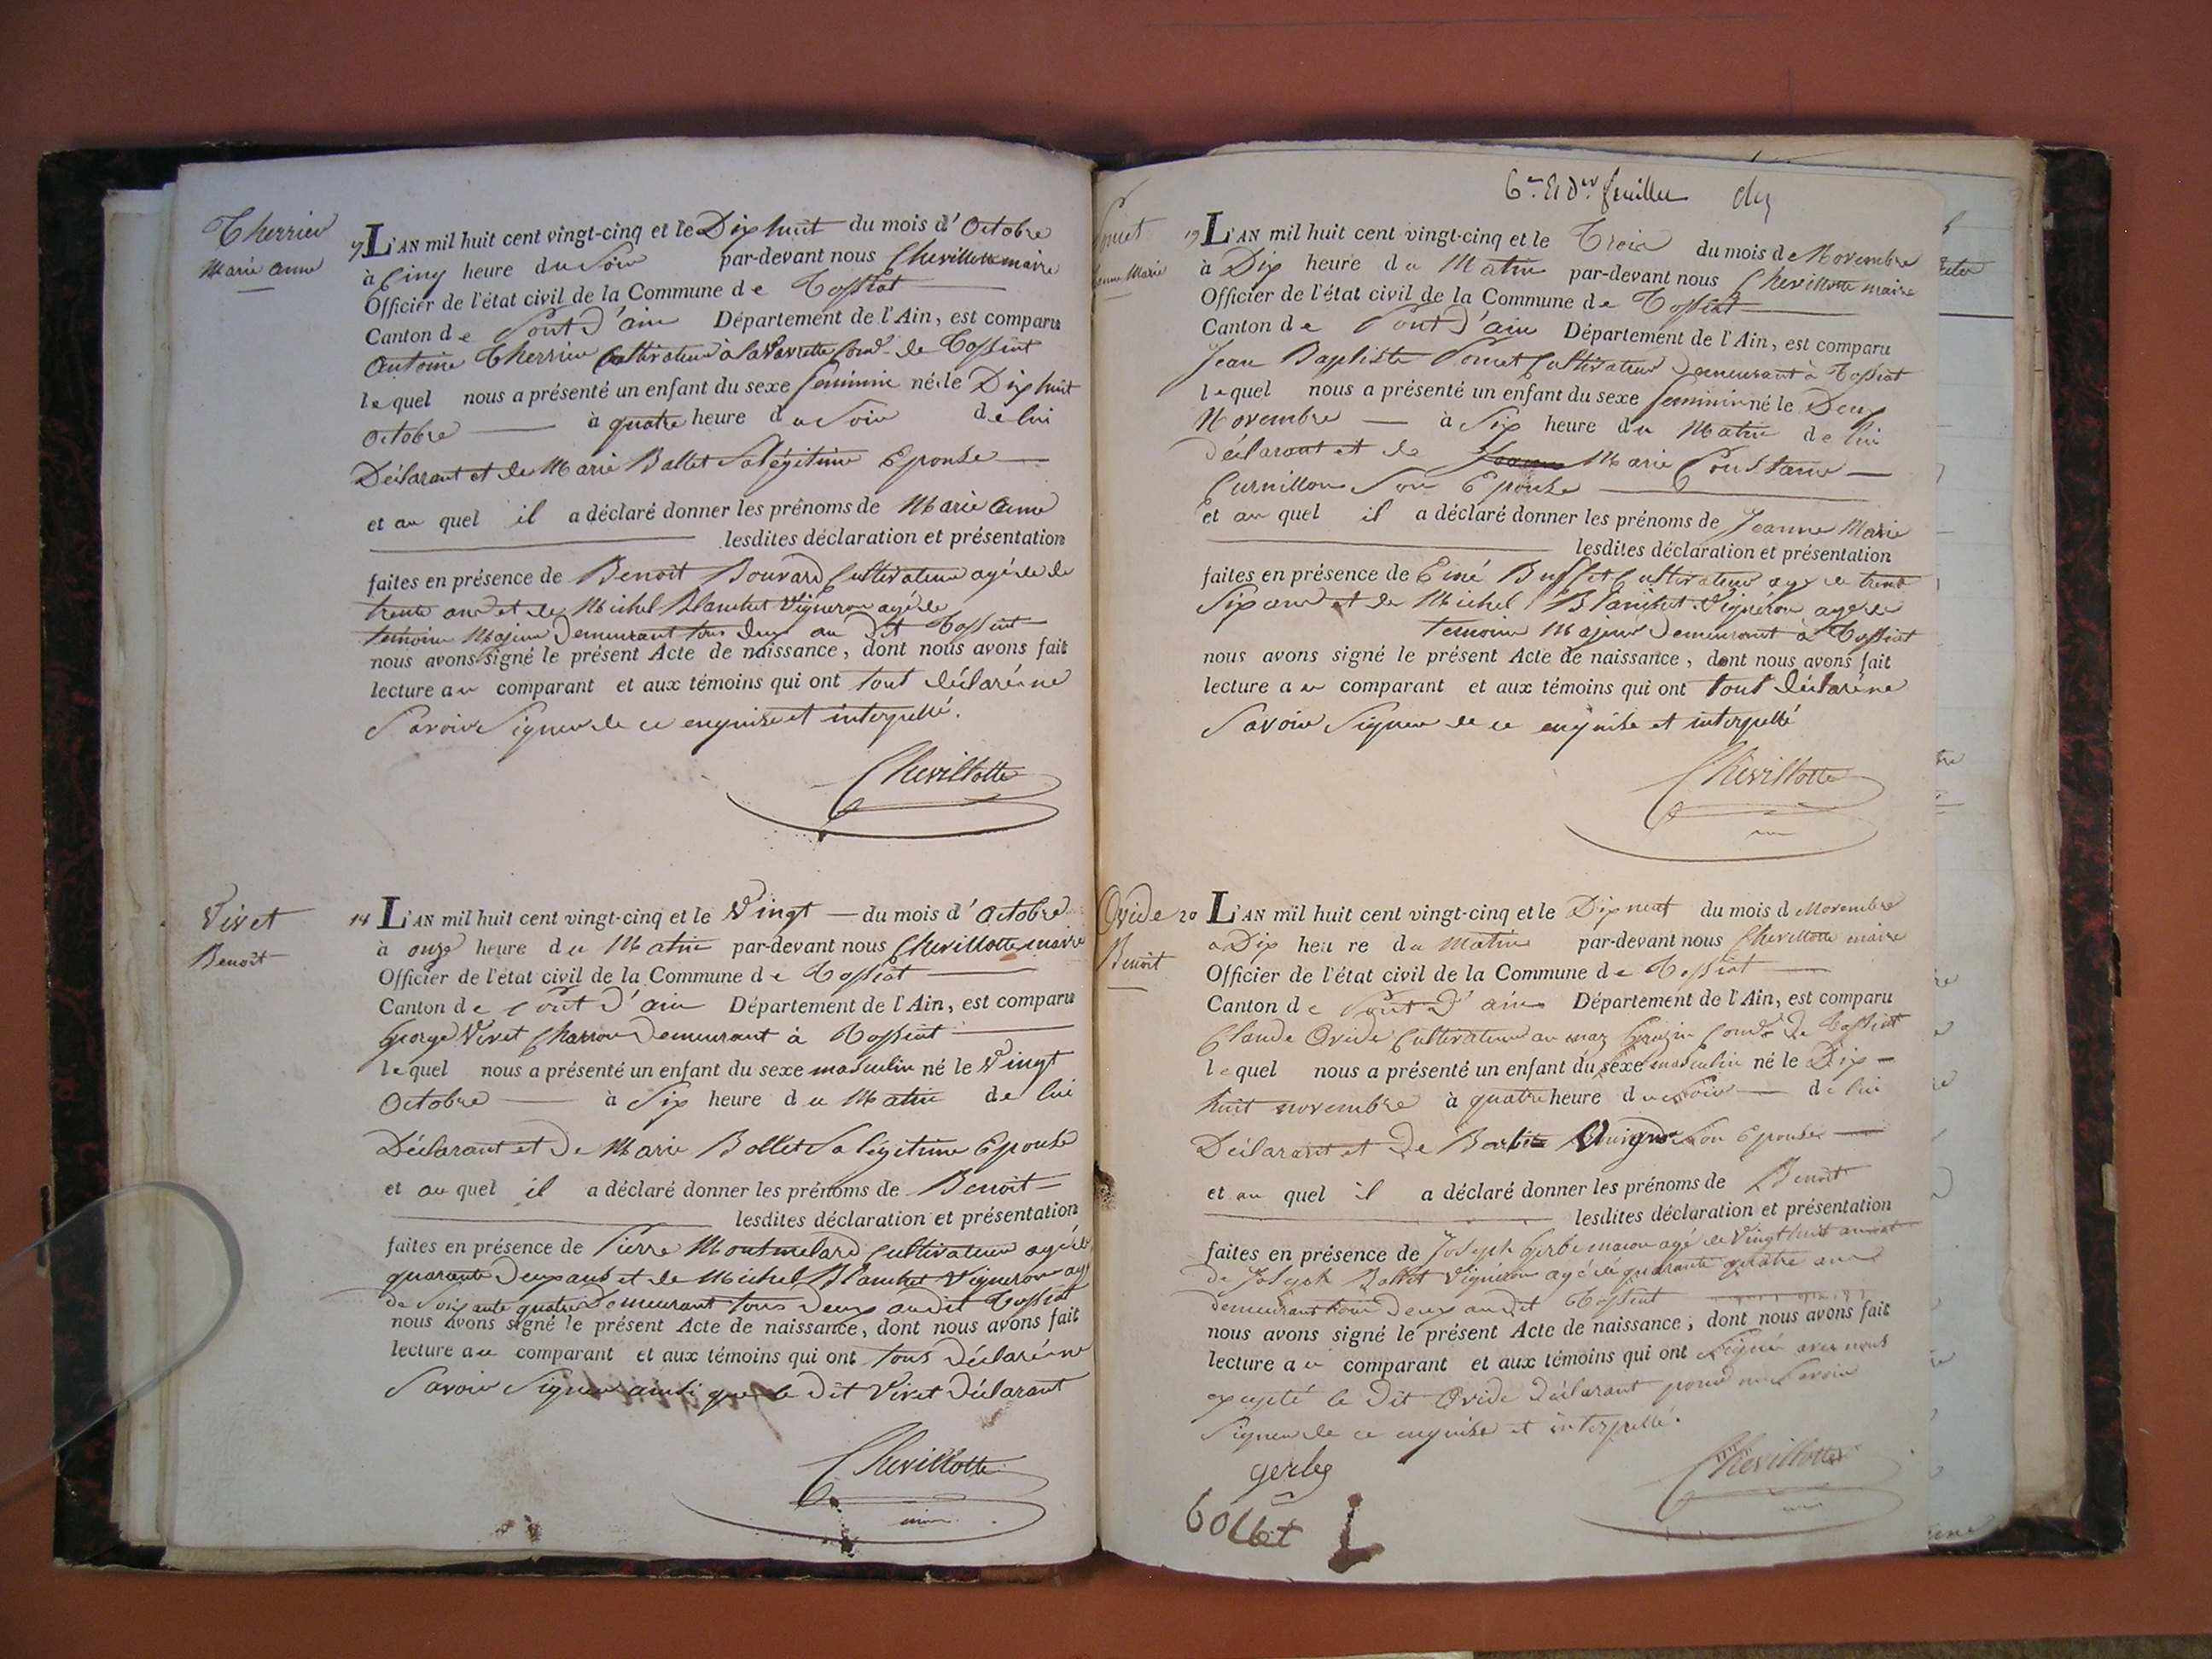 Therrien
Marie anne
L'AN mil huit cent vingt-cinq et le Dix huit du mois d'Octobre
à Cinq heure du Soir par-devant nous Chevillotte maire
Officier de l'état civil de la Commune de Tossiat
Canton de Pont d'ain Département de l'Ain, est comparu
Antoine Therrien Cultivateur à la Vavrette Com.e de Tossiat
lequel nous a présenté un enfant du sexe feminin né le Dix huit
Octobre à quatre heure du Soir de lui
Déclarant et de Marie Ballet Sa légitime Epouse
et au quel il a déclaré donner les prénoms de Marie anne
lesdites déclaration et présentation
faites en présence de Benoit Bouvard Cultivateur agé de de
trente ans et de Michel Blanchet Vigneron agé de
temoins Majeur Demeurant tous deux au dit Tossiat
nous avons signé le présent Acte de naissance, dont nous avons fait
lecture au comparant et aux témoins qui ont tout déclaré ne
Savoir Signer de ce enquise et interpellé.
Chevillotte
Vivet
Benoit
18 L'AN mil huit cent vingt-cinq et le Vingt du mois d'Octobre
à onze heure du Matin par-devant nous Chevillotte maire
Officier de l'état civil de la Commune de Tossiat
Canton de Pont d'ain Département de l'Ain, est comparu
George Vivet Charron Demeurant à Tossiat
lequel nous a présenté un enfant du sexe masculin né le Vingt
Octobre à Six heure du Matin de lui
Déclarant et De Marie Bollet Sa légitime Epouse
et au quel il a déclaré donner les prénoms de Benoit
lesdites déclaration et présentation
faites en présence de Pierre Montmelard Cultivateur agé de
quarante Deux ans et de Michel Blanchet Vigneron agé
de Soixante quatre Demeurant tous Deux audit Tossiat
nous avons signé le présent Acte de naissance, dont nous avons fait
lecture au comparant et aux témoins qui ont tous Déclaré ne
Savoir Signer ainsi que le Dit Vivet Déclarant
Chevillotte
6.e Et d.er feuillet
Jeanne Marie
19 L'AN mil huit cent vingt-cinq et le Trois du mois de Novembre
à Dix heure du Matin par-devant nous Chevillotte maire
Officier de l'état civil de la Commune de Tossiat
Canton de Pont d'ain Département de l'Ain, est comparu
Jean Baptiste Poncet Cultivateur Demeurant à Tossiat
lequel nous a présenté un enfant du sexe feminin né le Deux
Novembre à Six heure du Matin de lui
déclarant et de Marie Constance
Curnillon Son Epouse
et au quel il a déclaré donner les prénoms de Jeanne Marie
lesdites déclaration et présentation
faites en présence de Buffet Cultivateur agé de trente
Six ans et de Michel Blanchet Vigneron agé de
temoins Majeur Demeurant à Tossiat
nous avons signé le présent Acte de naissance, dont nous avons fait
lecture au comparant et aux témoins qui ont tout déclaré ne
Savoir Signer de ce enquise et interpellé
Chevillotte
Ovide
Benoit
20 L'AN mil huit cent vingt-cinq et le Dix neuf du mois d Novembre
à Dix heure du Matin par-devant nous Chevillotte maire
Officier de l'état civil de la Commune de Tossiat
Canton de Pont d'ain Département de l'Ain, est comparu
Claude Ovide Cultivateur au Com.e de Tossiat
lequel nous a présenté un enfant du sexe masculin né le Dix
huit novembre à quatre heure du Soir de lui
Déclarant et De Son Epouse
et au quel il a déclaré donner les prénoms de Benoit
lesdites déclaration et présentation
faites en présence de Joseph Gerbe macon agé de Vingt huit ans et
de Joseph Bollet Vigneron agé de quarante quatre ans
demeurant tous Deux audit Tossiat
nous avons signé le présent Acte de naissance, dont nous avons fait
lecture au comparant et aux témoins qui ont Signé avec nous
excepté le Dit Ovide Déclarant pour ne Savoir
Signer de ce enquise et interpellé.
gerbe
Chevillotte
bollet